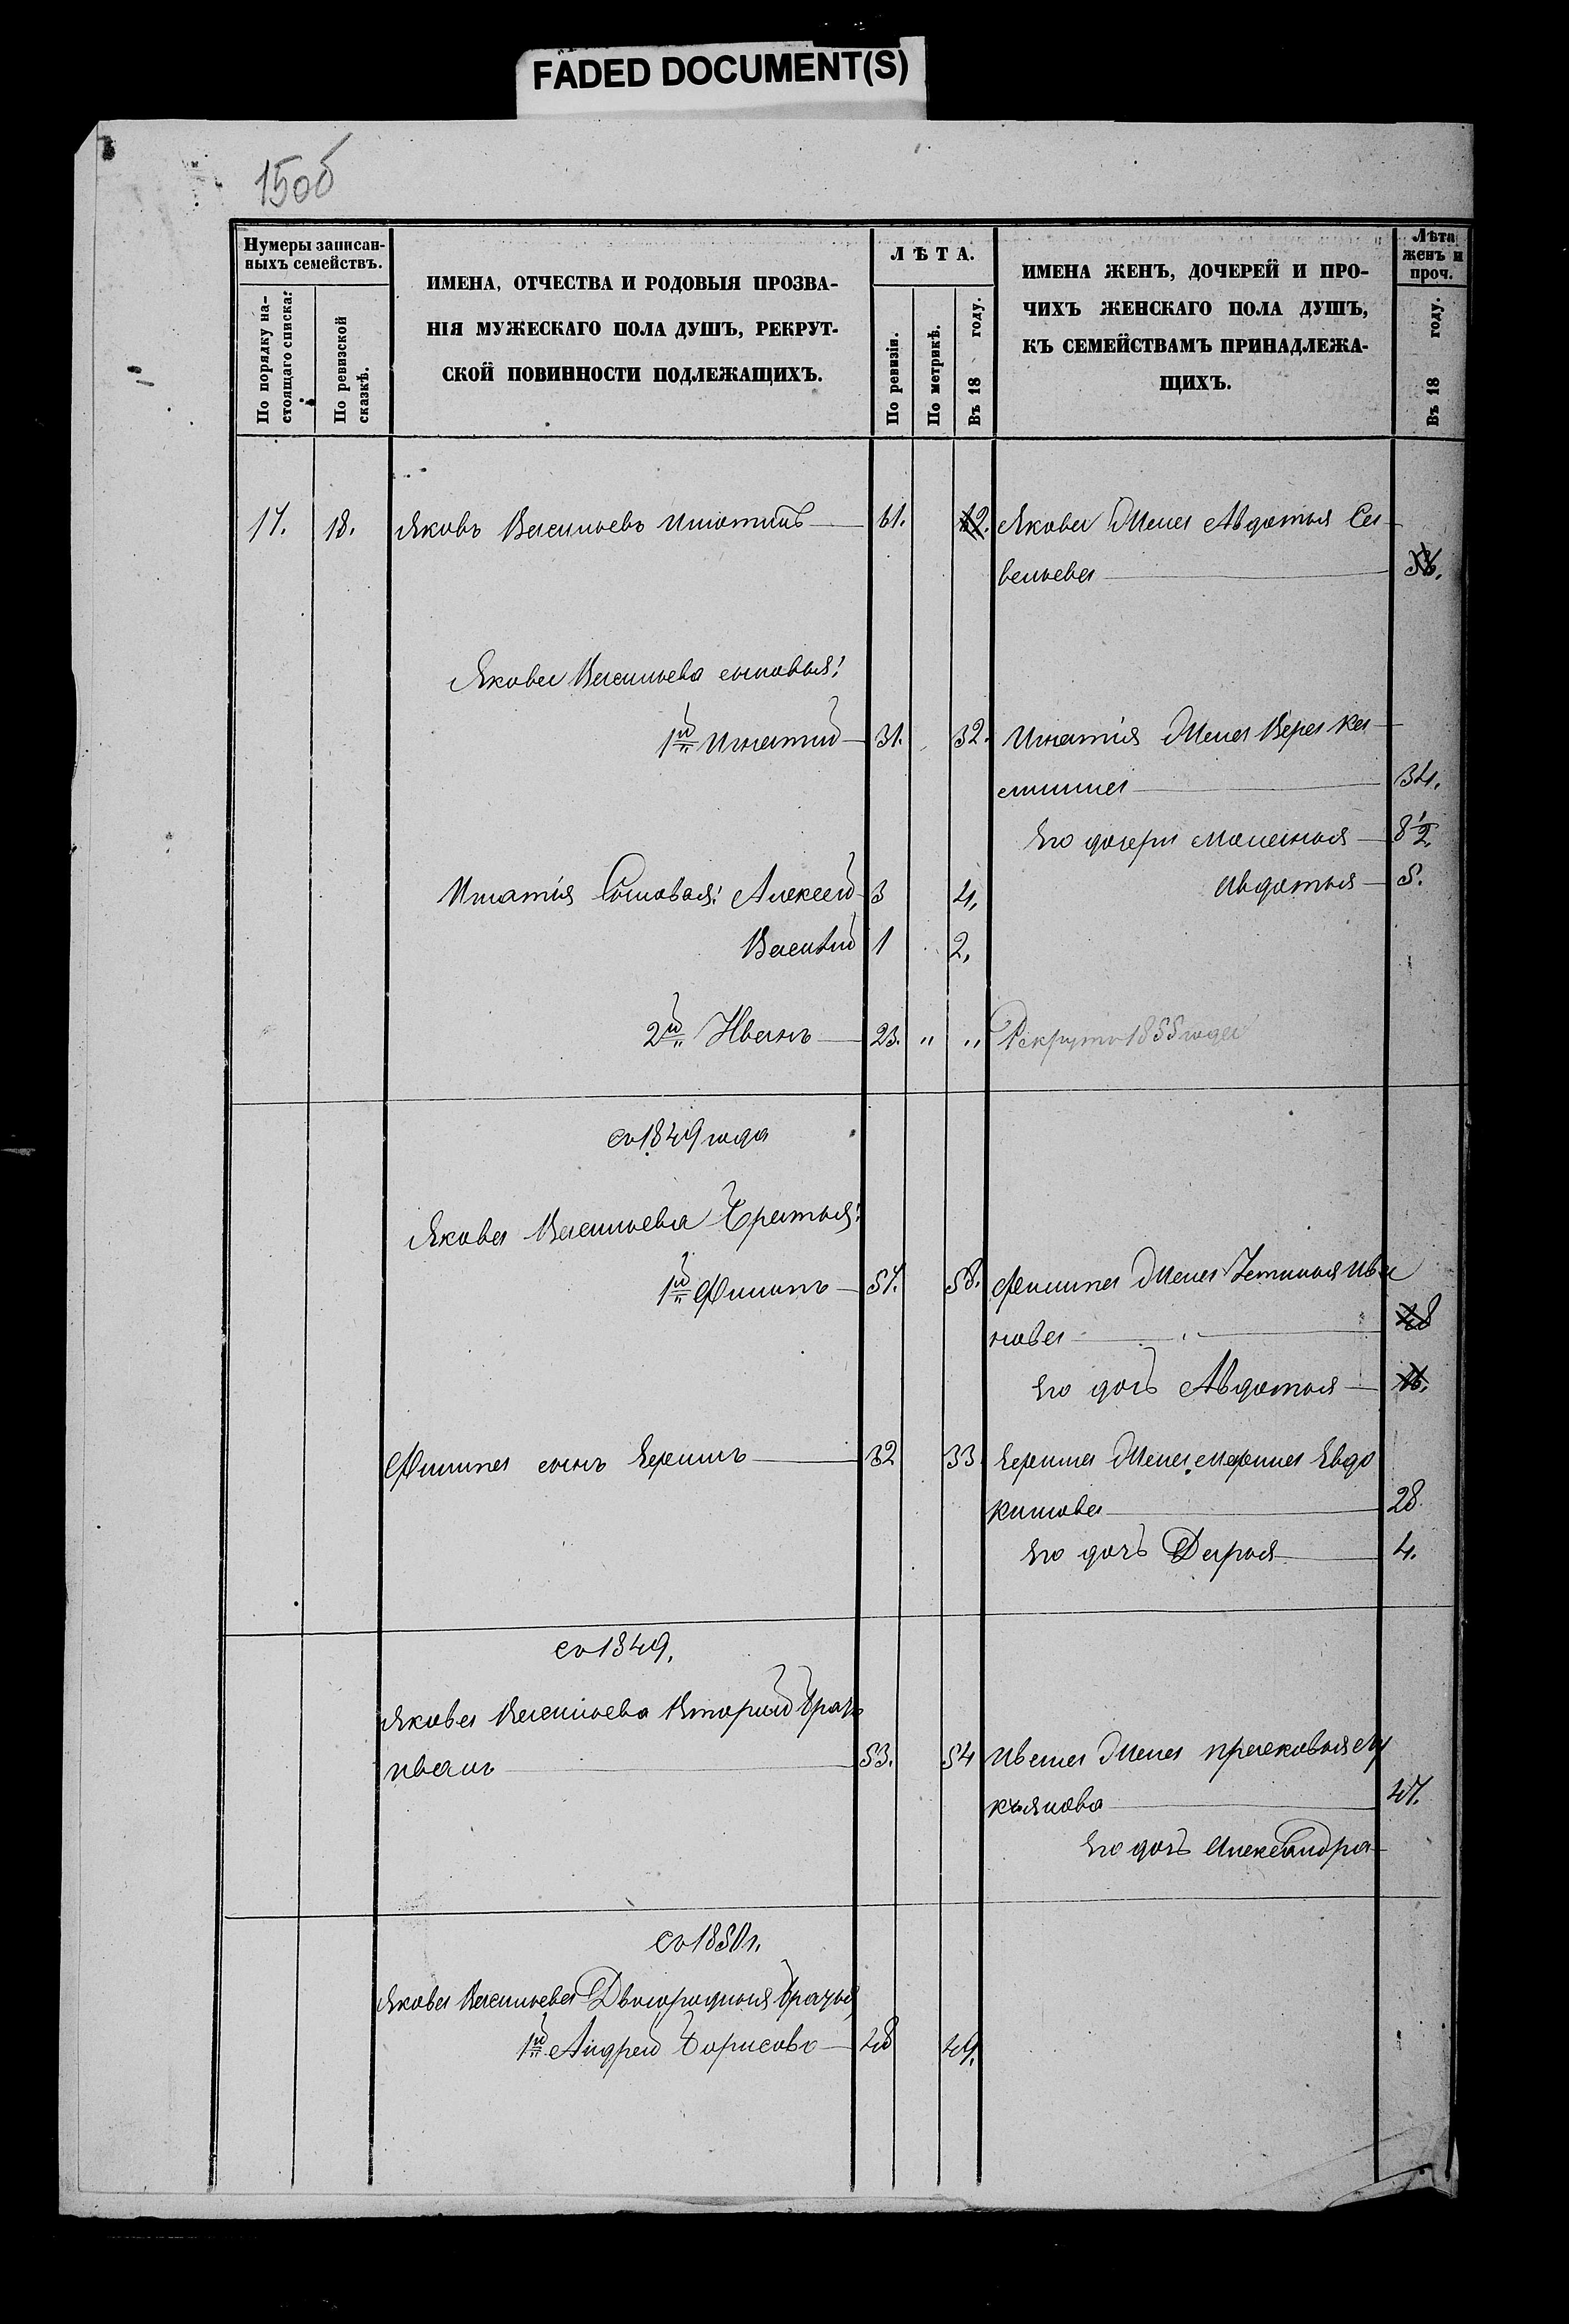 FADED DOCUMENT(S)
150б
Нумеры записан-
ныхъ семействъ.
По порядку на-
стоящаго списка.
По ревизской
сказкѣ.
ИМЕНА, ОТЧЕСТВА И РОДОВЫЯ ПРОЗВА-
НІЯ МУЖЕСКАГО ПОЛА ДУШЪ, РЕКРУТ-
СКОЙ ПОВИННОСТИ ПОДЛЕЖАЩИХЪ.
ЛѢТА.
По ревизіи.
По метрикѣ.
Въ 18 году.
ИМЕНА ЖЕНЪ, ДОЧЕРЕЙ И ПРО-
ЧИХЪ ЖЕНСКАГО ПОЛА ДУШЪ,
КЪ СЕМЕЙСТВАМЪ ПРИНАДЛЕЖА-
ЩИХЪ.
Лѣта
женъ и
проч.
Въ 18 году.
17. 18. Яковъ Васильевъ 61. 62. Якова Жена Авдотья Са-
вельева
Якова Васильева сыновья:
1й Игнатий 31. 32. Игнатія Жена Вера Ка-
34.
Его дочери 8 1/2
Авдотья 5.
Игнатія Сыновья: Алексей 3 4.
Василий 1 2.
2й Иванъ 23. " " Рекрутъ 1855 года
съ 1849 года
Якова Васильева Братья:
1й Филипъ 57. 58. Филипа Жена Устинья Ива
нова 48
Его дочь Авдотья 16.
Филипа сынъ Ефимъ 32 33. Ефима Жена Марина Евдо
кимова 28.
Его дочь Дарья 4.
съ 1849.
Якова Васильева Второй братъ
Иванъ 53. 54 Ивана Жена Прасковья Лу
кьянова 47.
Его дочь Александра
съ 1850 г.
Якова Васильева Двоюродныя братья
1й Андрей Борисовъ